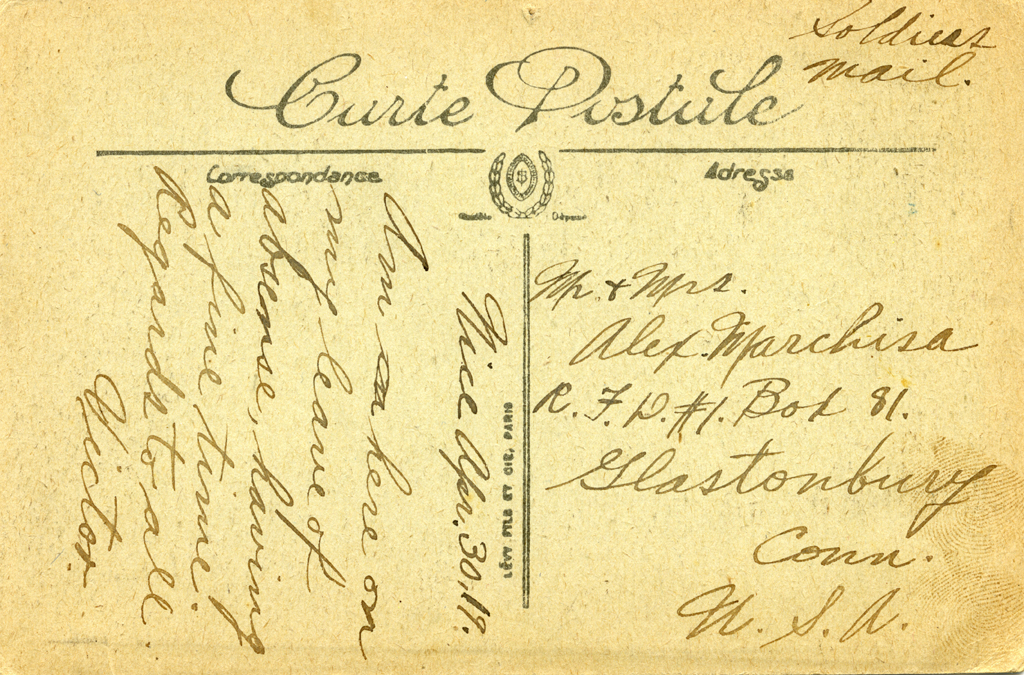 Soldiers
Mail.
Carte Postale
Correspondance
Adresse
Nice Apr. 30. 19.
Am a here on
my leave of
absense, having
a fine time.
Regards to all.
Victor.
LÉVY FILS ET CIE, PARIS
Mr. + Mrs.
Alex. Marchisa
R. F. D. #1. Box 81.
Glastonbury
Conn.
U. S. A.